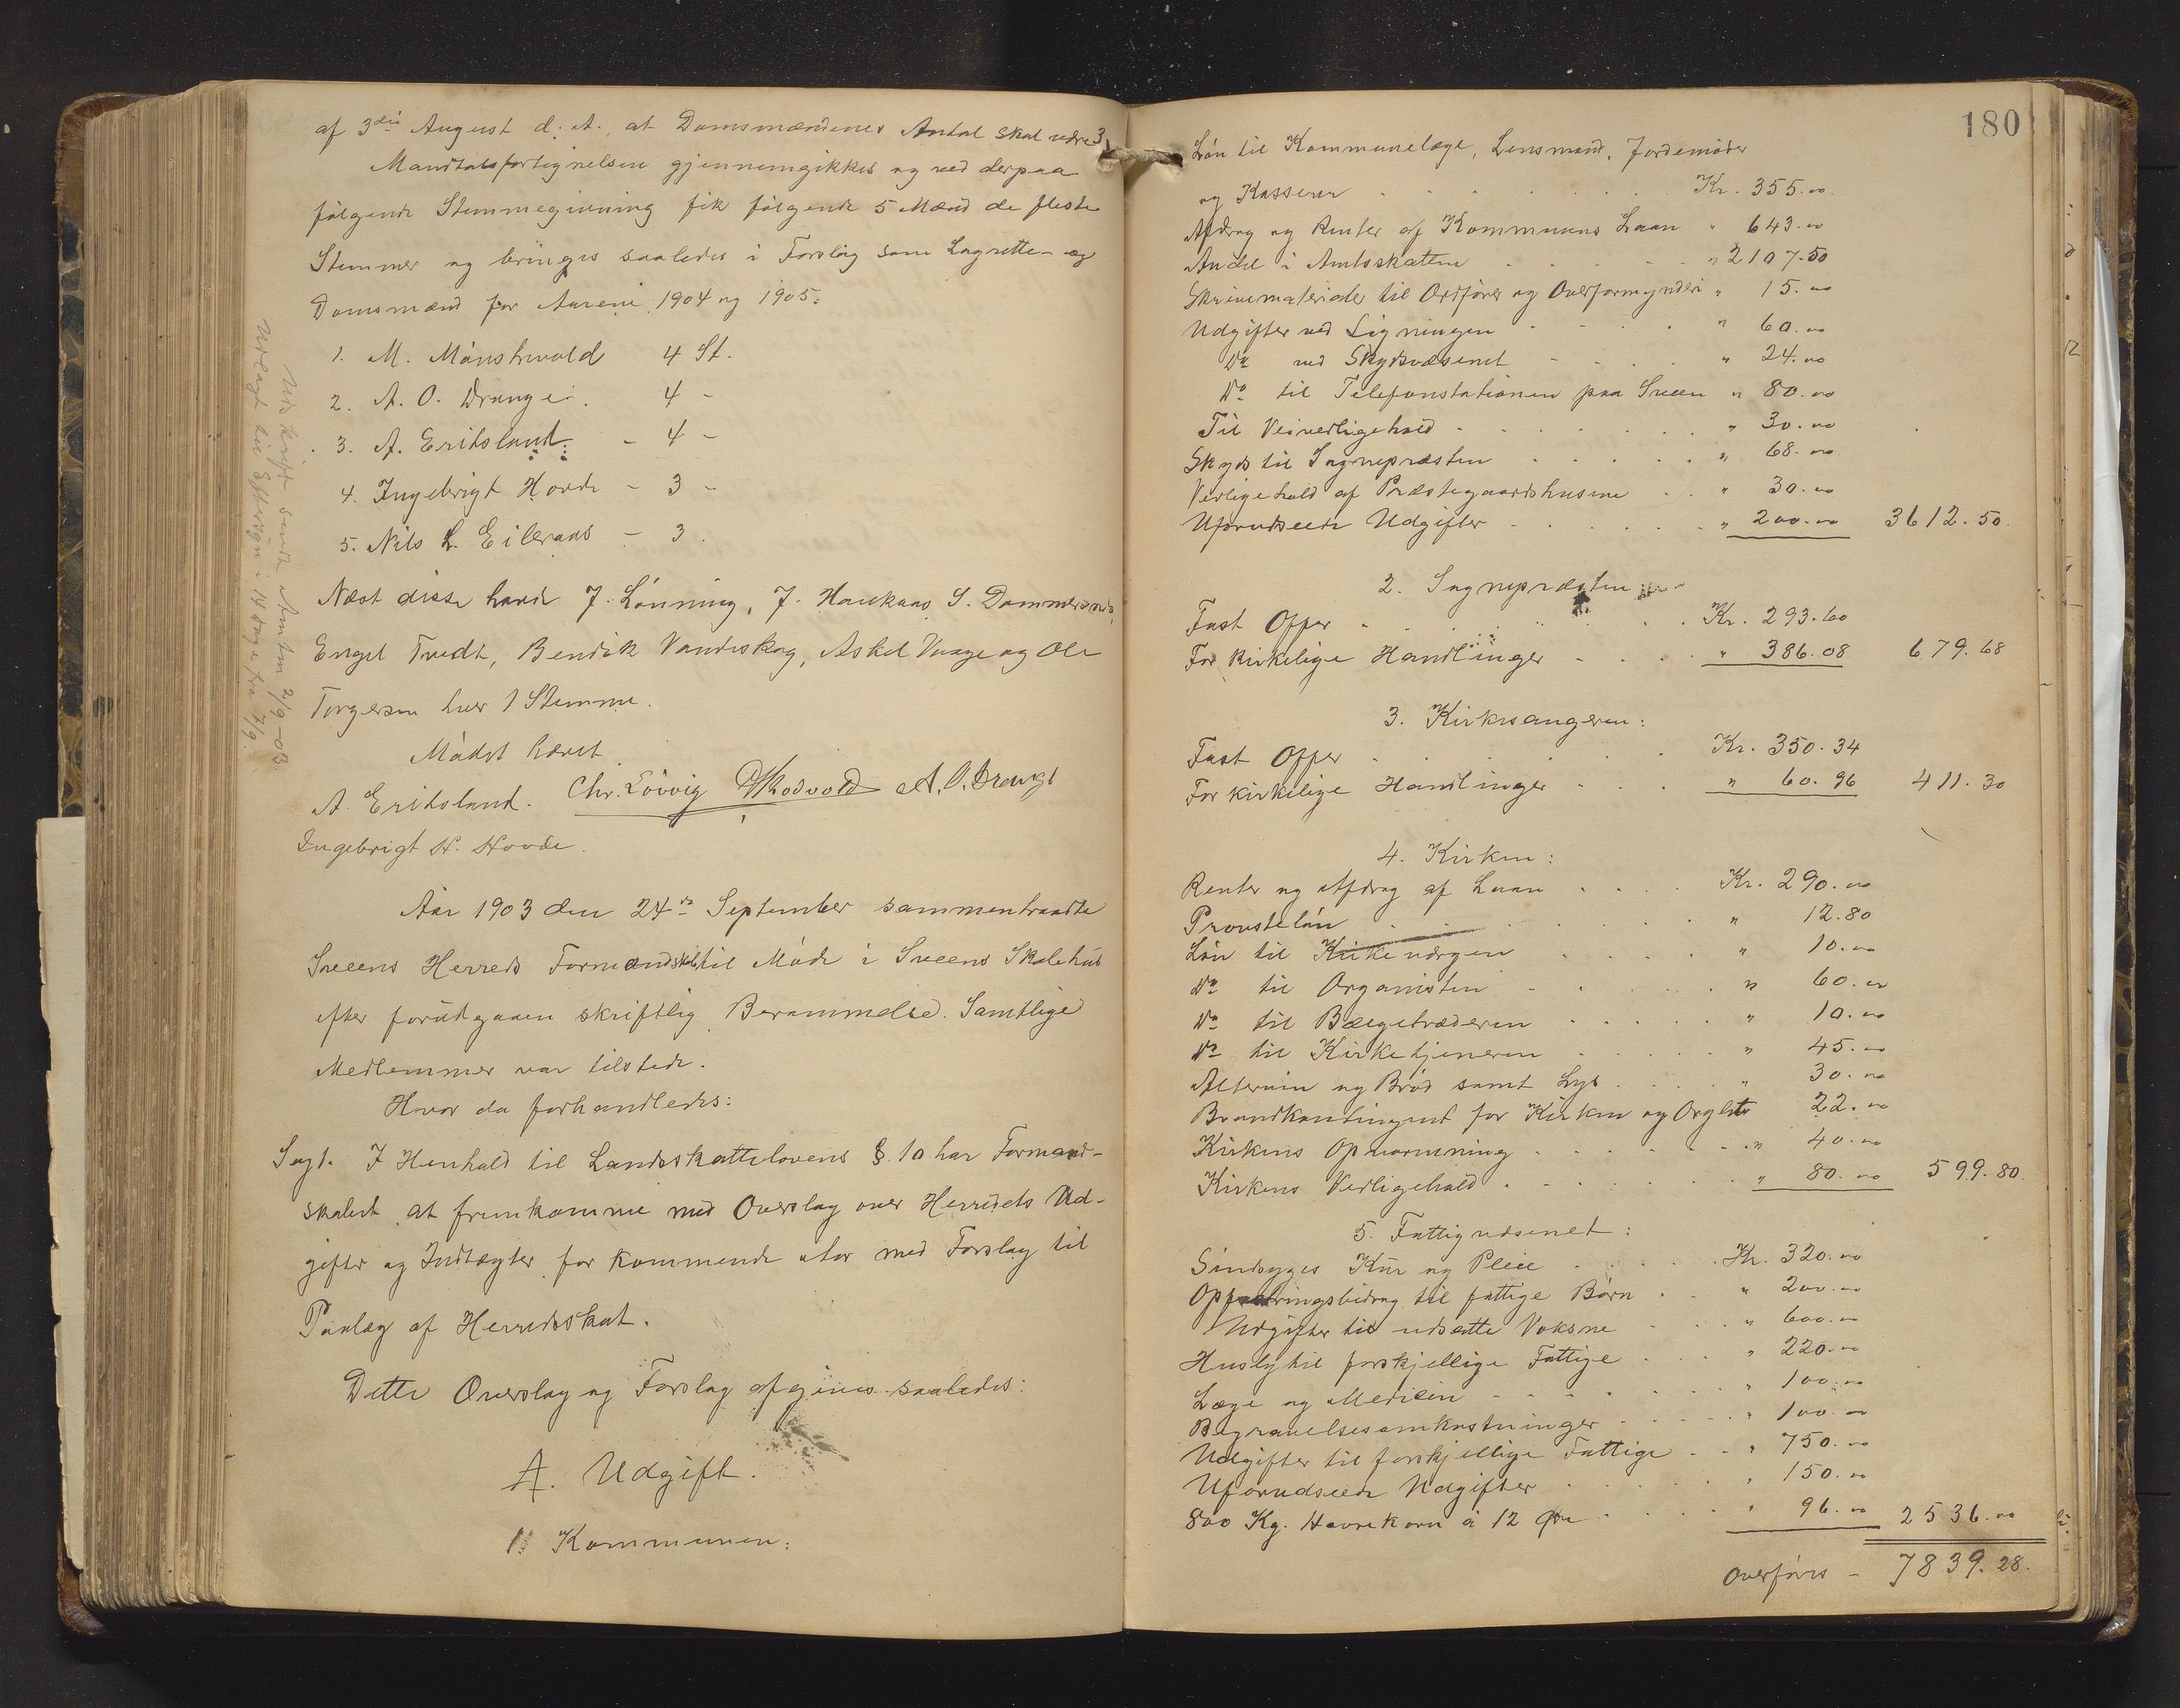 af 3die August d. A., at Domsmændenes Antal skal være 3.
Mandtalsfortegnelsen gjennemgikkes og ved derpaa
følgende Stemmegivning fik følgende 5 Mænd de fleste
Stemmer og bringes saaledes i Forslag som Lagrette- og
Domsmænd for Aarene 1904 og 1905:
1. M. Mønstrevold 4 St.
2. A. O. Drange 4 -
3. A. Eritsland - 4 -
4. Ingebrigt Hovde - 3 -
5. Nils L. Eileraas - 3.
Næst disse havde J. Lønning, J. Haukaas, S. Dommersnes,
Engel Tvedt, Bendik Vandeskog, Askel Vaage og Ole
Torgersen hver 1 Stemme.
Mødet hævet.
A. Eritsland. Chr. Løvvig A. O. Drange
Ingebrigt N. Hovde.
Udskrift sendt Amtet 2/9-03.
Udlagt til Eftersyn i 14 Dage fra 7/9.
Aar 1903 den 24de September sammentraadte
Sveens Herreds Formandskab til Møde i Sveens Skolehus
efter forudgaaen skriftlig Berammelse. Samtlige
Medlemmer var tilstede.
Hvor da forhandledes:
Sag 1. I Henhold til Landsskattelovens §. 10 har Formand-
skabet at fremkomme med Overslag over Herredets Ud-
gifter og Indtægter for kommende Aar med Forslag til
Paalæg af Herredsskat.
Dette Overslag og Forslag afgives saaledes:
A. Udgift.
1. Kommunen:
180
Løn til Kommunelæge, Lensmand, Jordemøder
og Kasserer Kr. 355.00
Afdrag og Renter af Kommunens Laan " 643.00
Andel i Amtsskatten " 2107.50
Skrivematerialer til Ordfører og Overformynderi " 15.00
Udgifter ved Ligningen " 60.00
Do ved Skydsvæsenet " 24.00
Do til Telefonstationen paa Sveen " 80.00
Til Veivedligehold " 30.00
Skyds til Sognepræsten " 68.00
Vedligehold af Præstegaardshusene " 30.00
Uforudseede Udgifter " 200.00 3612.50
2. Sognepræsten
Fast Offer Kr. 293.60
For kirkelige Handlinger " 386.08 679.68
3. Kirkesangeren:
Fast Offer Kr. 350.34
For kirkelige Handlinger " 60.96 411.30
4. Kirken:
Renter og Afdrag af Laan Kr. 290.00
Provsteløn " 12.80
Løn til Kirkeværgen " 10.00
Do til Organisten " 60.00
Do til Bælgetræderen " 10.00
Do til Kirketjeneren " 45.00
Altervin og Brød samt Lys " 30.00
Brandkontingent for Kirken og Orglet 22.00
Kirkens Opvarmning " 40.00
Kirkens Vedligehold " 80.00 599.80
5. Fattigvæsenet:
Sindsyges Kur og Pleie Kr. 320.00
Opfostringsbidrag til fattige Børn " 200.00
Udgifter til udsatte Voksne " 600.00
Husly til forskjellige Fattige " 220.00
Læge og Medicin " 100.00
Begravelsesomkostninger " 100.00
Udgifter til forskjellige Fattige " 750.00
Uforudseede Udgifter " 150.00
800 Kg. Havrekorn à 12 Øre " 96.00 2536.00
Overføres - 7839.28.